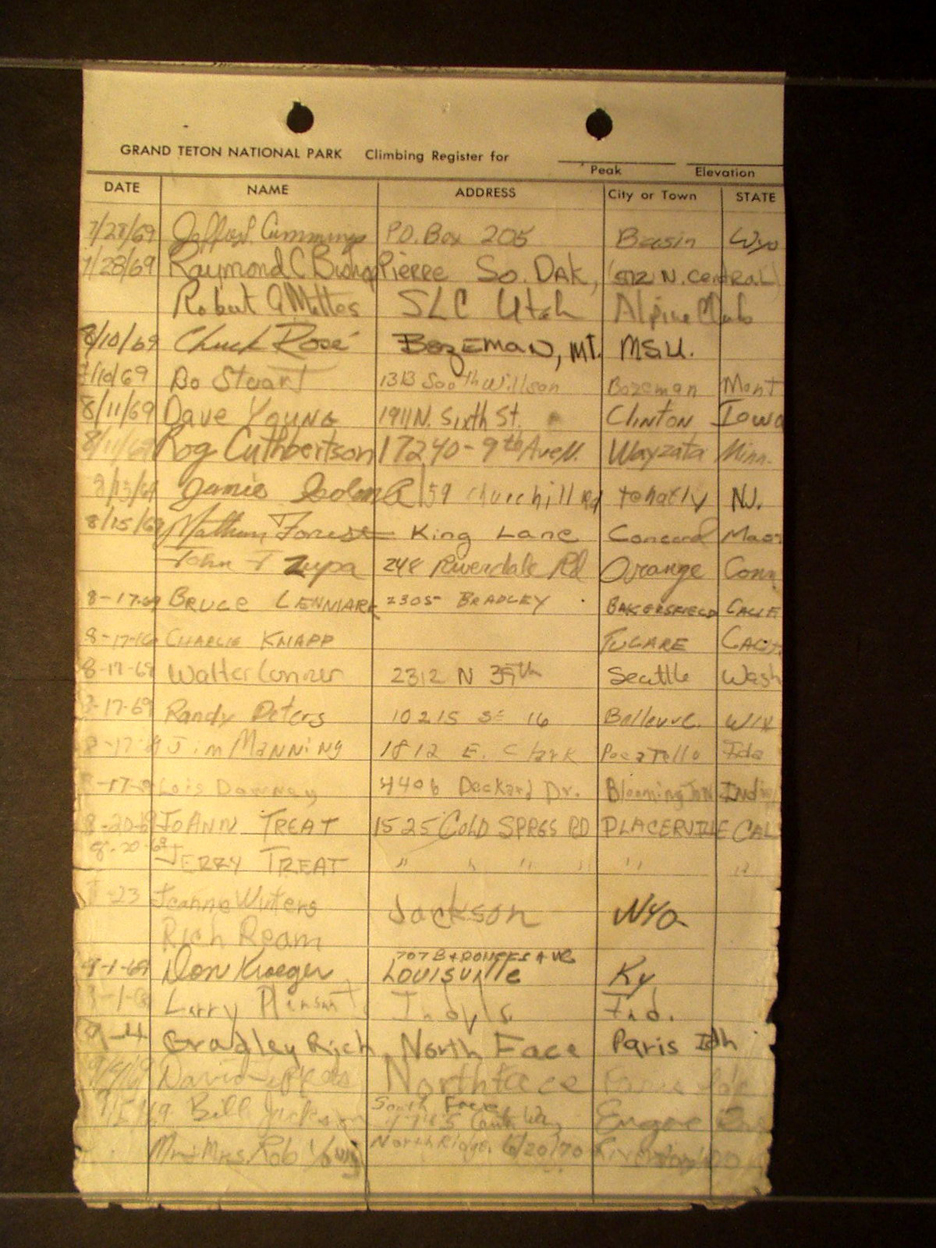 GRAND TETON NATIONAL PARK Climbing Register for
Peak Elevation
DATE NAME ADDRESS City or Town STATE
7/27/69 Cummings P.O. Box 205 Basin Wyo
7/28/69 Raymond C Bishop Pierre So. Dak, (512 N. Central)
Robert G Mattes SLC Utah Alpine Club
8/10/69 Chuck Rose Bozeman, MT. MSU.
/10/69 Bo Stuart 1313 South Willson Bozeman Mont
8/11/69 Dave Young 1911 N. Sixth St. Clinton Iowa
8/11/69 Rog Cuthbertson 17240-9th Ave N. Wayzata Minn.
8/13/69 Jamie 159 Churchill Rd tenafly NJ.
8/15/69 Forest King Lane Concord Mass
John T Zupa 248 Riverdale Rd Orange Conn
8-17-69 BRUCE LENMARK 2305 BRADLEY BAKERSFIELD CALIF
8-17- CHARLIE KNAPP TULARE CALIF
8-17-69 Walter Connor 2312 N 39th Seattle Wash
8-17-69 Randy Peters 10215 SE 16 Bellevue.
8-17- Jim Manning 1812 E. Clark Pocatello Ida
8-17- Lois Downey 4406 Deckard Dr. Bloomington Indi
8-20-69 JoAnn TREAT 1525 COLD SPRGS RD PLACERVILLE CAL
8-20-69 JERRY TREAT " " " " " "
-23 Jeanne Wuters Jackson WYO
Rich Ream
707 Ave
9-1-69 Don Kroeger Louisville Ky
-1- Larry Indpls. Ind.
9-4 Bradley Rich North Face Paris Idh
9/4/69 David Northface
South Face
9/5/69 Bill Jackson Eugene
Mr & Mrs. Rob Young North Ridge 6/20/70